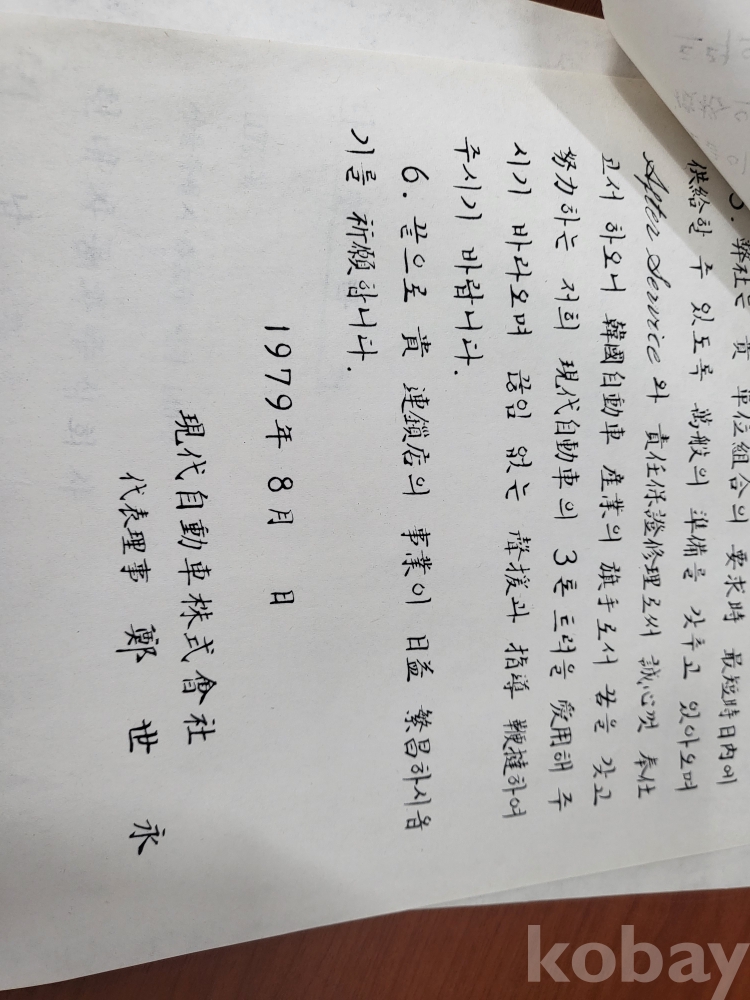 5. 弊社는 貴 單位組合의 要求時 最短時日内에
供給할 수 있도록 萬般의 準備를 갖추고 있아오며
After Service와 責任保證修理로써 誠心껏 奉仕
코서 하오니 韓國自動車 産業의 旗手로서 꿈을 갖고
努力하는 저희 現代自動車의 3톤트럭을 愛用해 주
시기 바라오며 끊임 없는 聲援과 指導 鞭撻하여
주시기 바랍니다.
6. 끝으로 貴 連鎖店의 事業이 日益 繁昌하시옵
기를 祈願합니다.
1979年 8月 日
現代自動車株式會社
代表理事 鄭 世 永
kobay